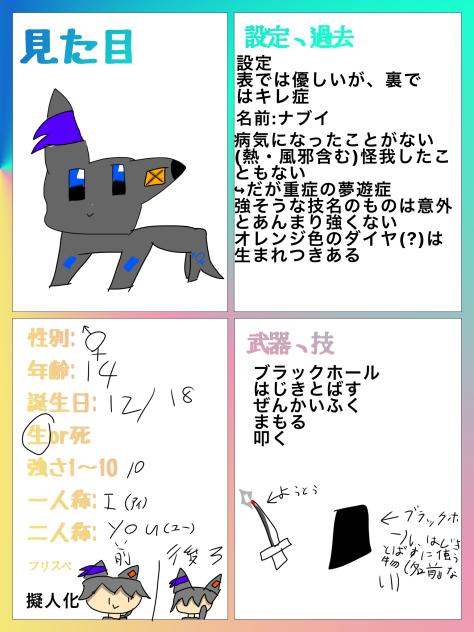 見た目
設定、過去
設定
表では優しいが、裏で
はキレ症
名前:ナブイ
病気になったことがない
(熱・風邪含む)怪我したこ
ともない
↪だが重症の夢遊症
強そうな技名のものは意外
とあんまり強くない
オレンジ色のダイヤ(?)は
生まれつきある
性別:⚥
年齢:14
誕生日:12/18
生or死
強さ1〜10 10
一人称:I(アイ)
二人称:YOU(ユー)
フリスペ
前
後ろ
擬人化
武器、技
ブラックホール
はじきとばす
ぜんかいふく
まもる
叩く
←ようとう
←ブラックホ
ール、はじき
とばすに使う
物(名前な
い)